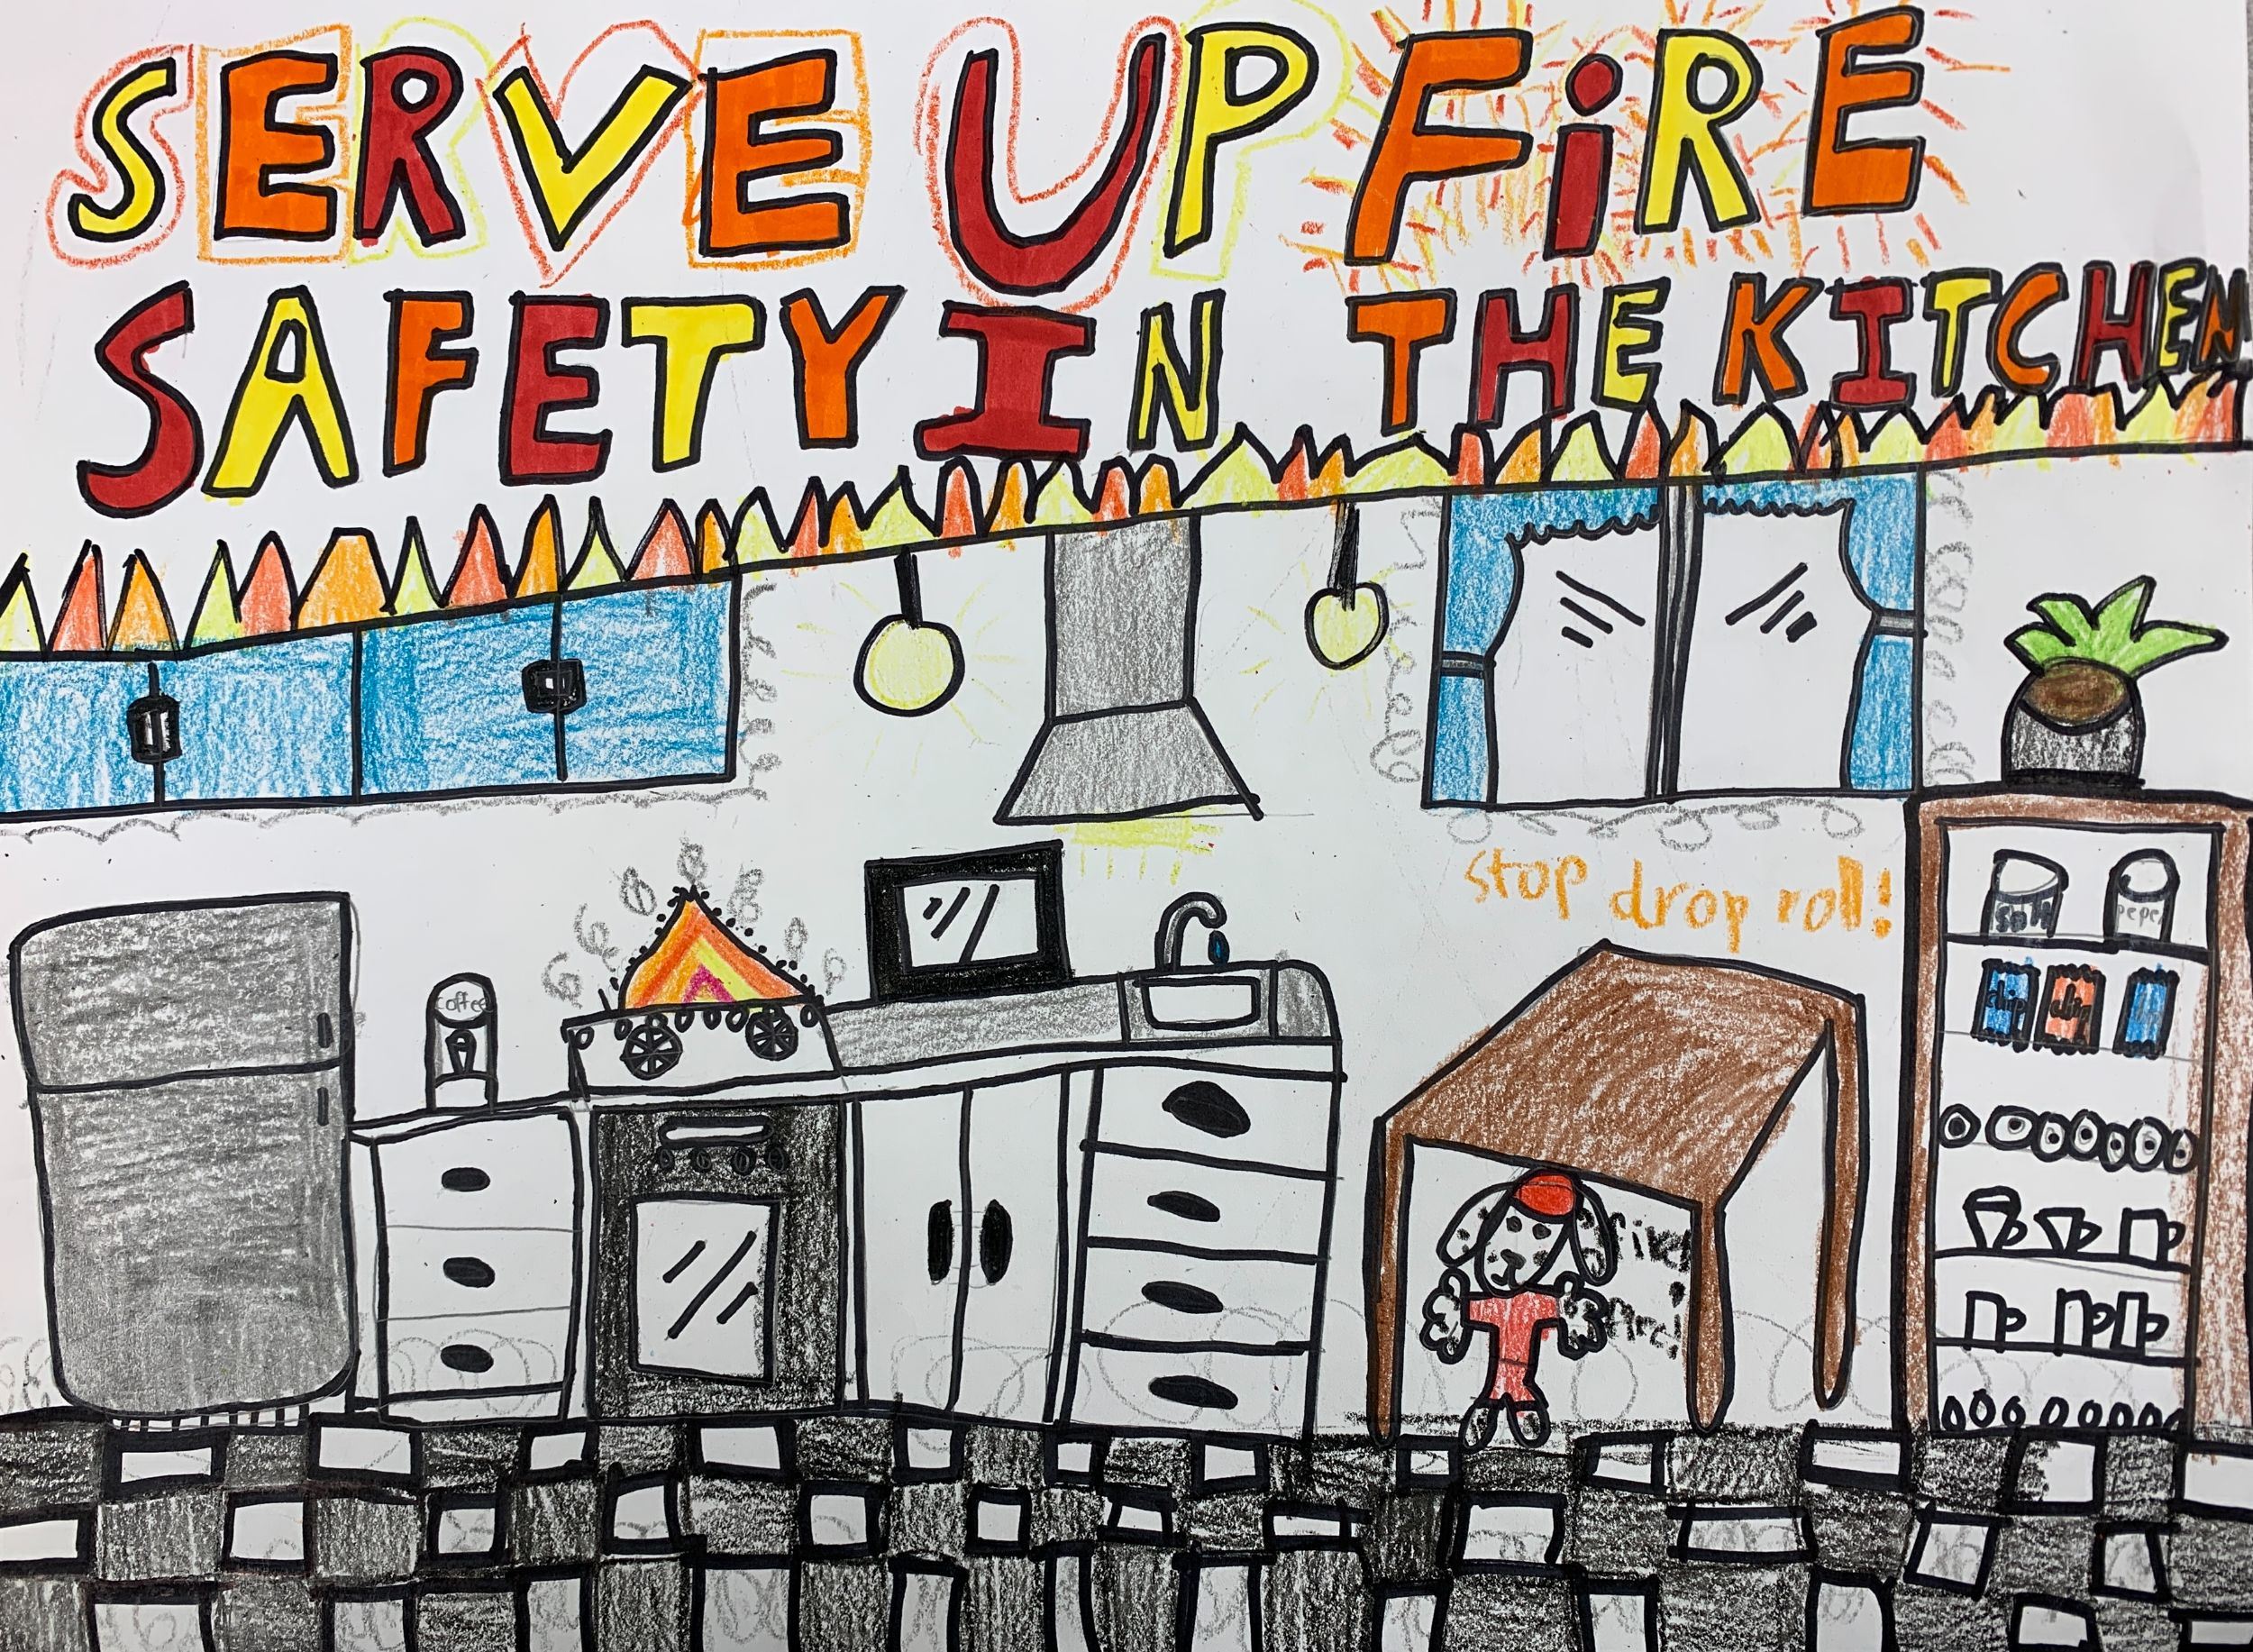 SERVE UP FiRE
SAFETY IN THE KITCHEN
stop drop roll!
coffee
salt
chip
chip